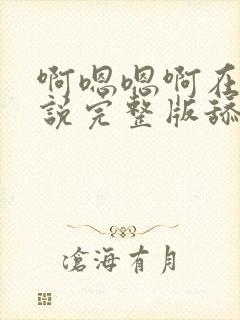 啊嗯嗯啊在
说完整版舔
沧海有月